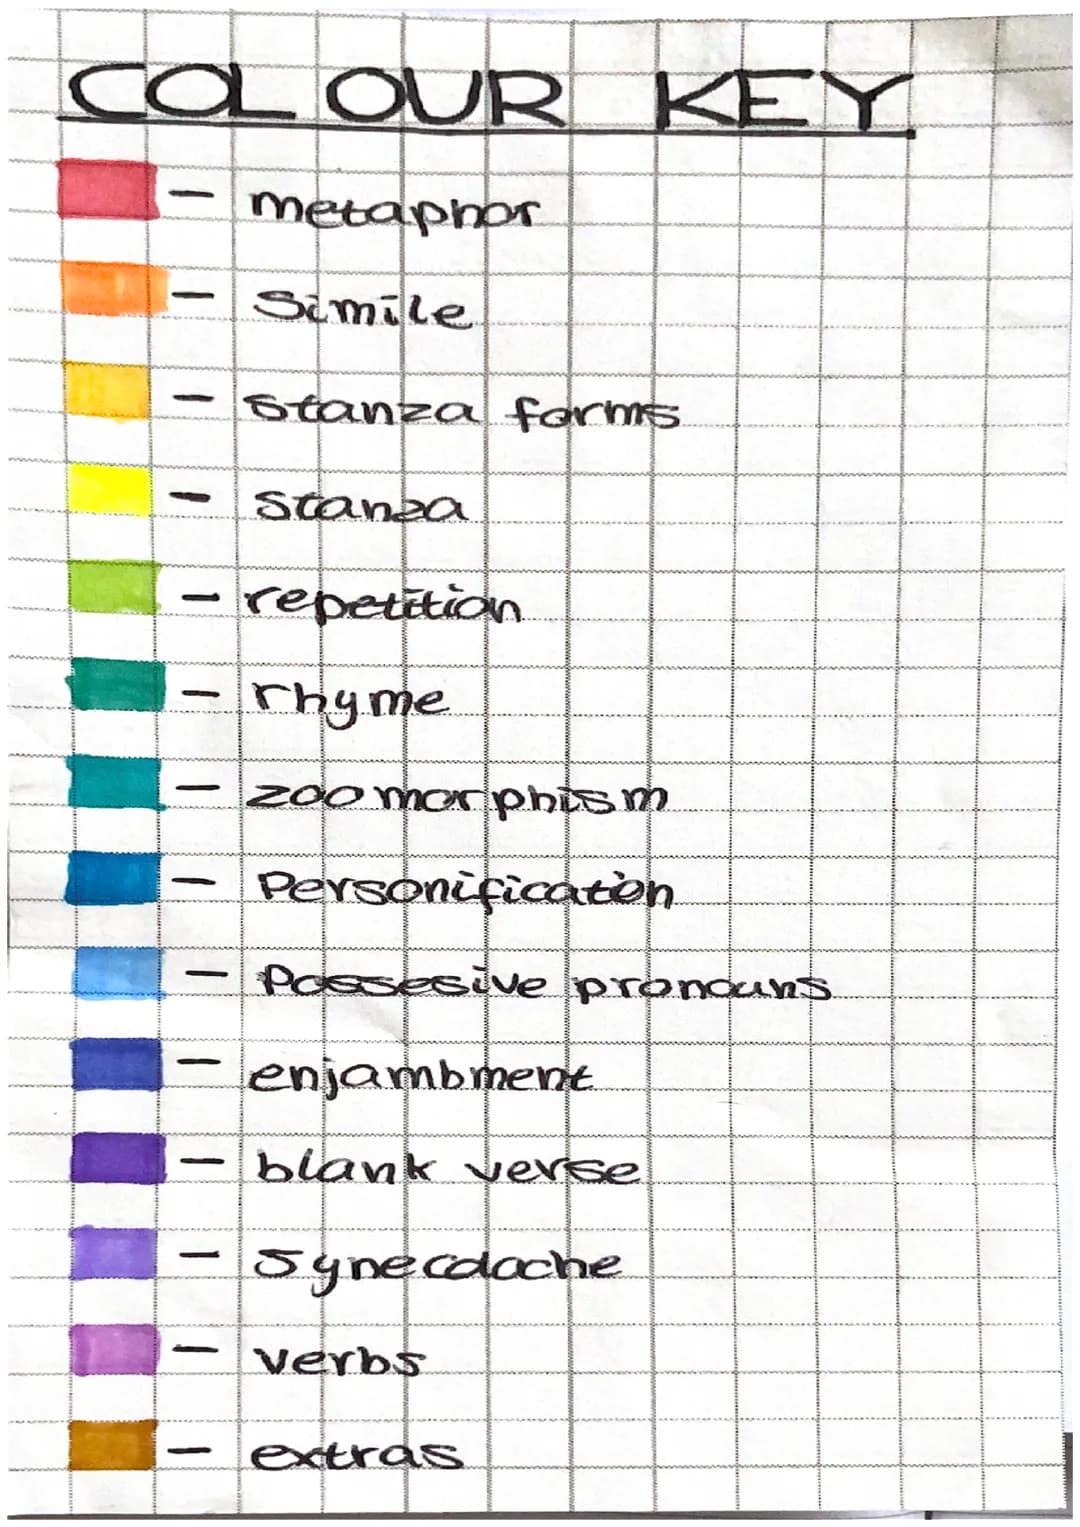 COLOUR KEY
- metaphor
- Simile
- stanza forms
- stanza
- repetition
- rhyme
- zoomorphism
- Personification
- Possesive pronouns
- enjambment
- blank verse
- Synecdoche
- verbs
- extras